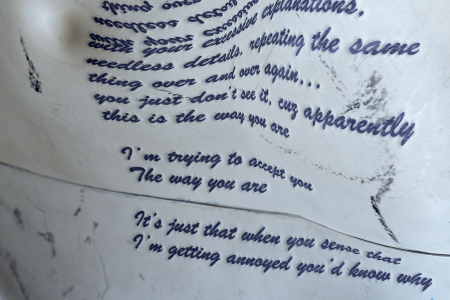 thing over
needless details
with your excessive explanations,
needless details, repeating the same
thing over and over again...
you just don't see it, cuz apparently
this is the way you are
I'm trying to accept you
The way you are
It's just that when you sense that
I'm getting annoyed you'd know why